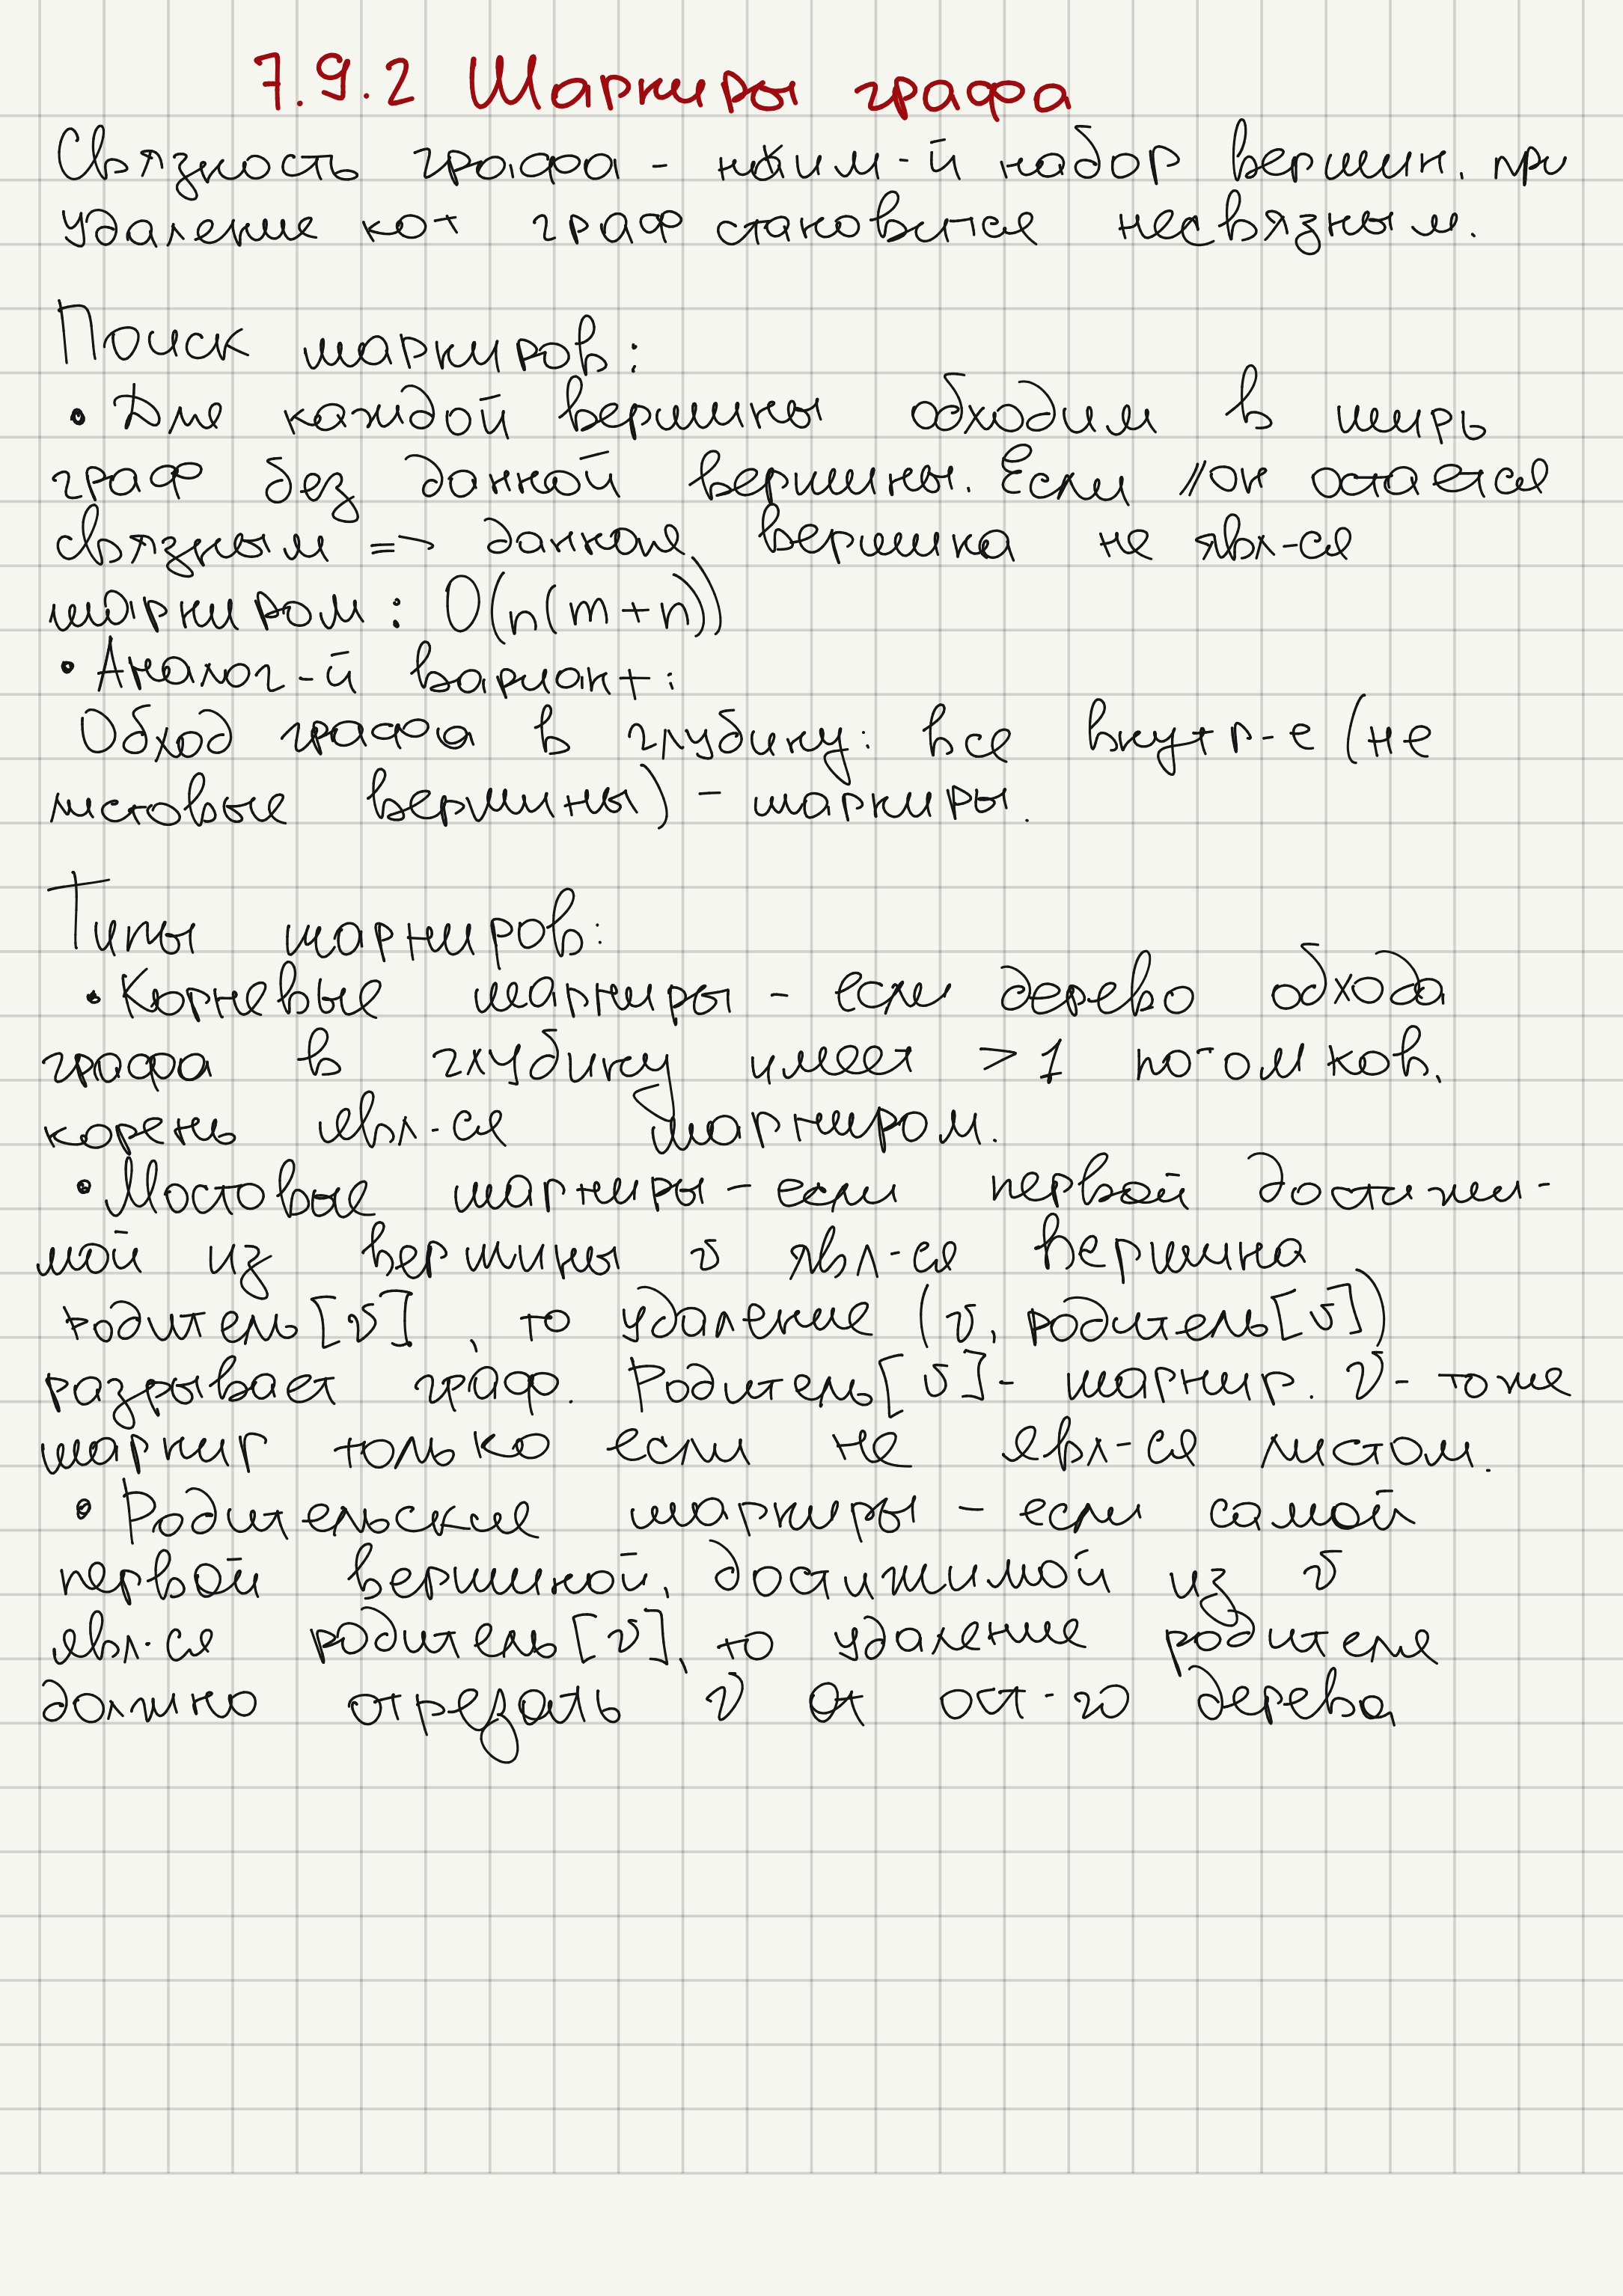 7.9.2 Шарниры графа
Связность графа - наим-й набор вершин, при
удаление кот граф становится несвязным.
Поиск шарниров:
• Для каждой вершины обходим в ширь
граф без данной вершины. Если //он остается
связным => данная вершина не явл-ся
шарниром : O(n(m+n))
• Аналог-й вариант:
Обход графа в глубину: все внутр-е (не
листовые вершины) - шарниры.
Типы шарниров:
• Корневые шарниры - если дерево обхода
графа в глубину имеет > 1 потомков,
корень явл-ся шарниром.
• Мостовые шарниры - если первой достижи-
мой из вершины v явл-ся вершина
родитель[v], то удаление (v, родитель[v])
разрывает граф. Родитель[v] - шарнир. v - тоже
шарнир только если не явл-ся листом.
• Родительские шарниры - если самой
первой вершиной, достижимой из v
явл-ся родитель[v], то удаление родителя
должно отрезать v от ост-го дерева